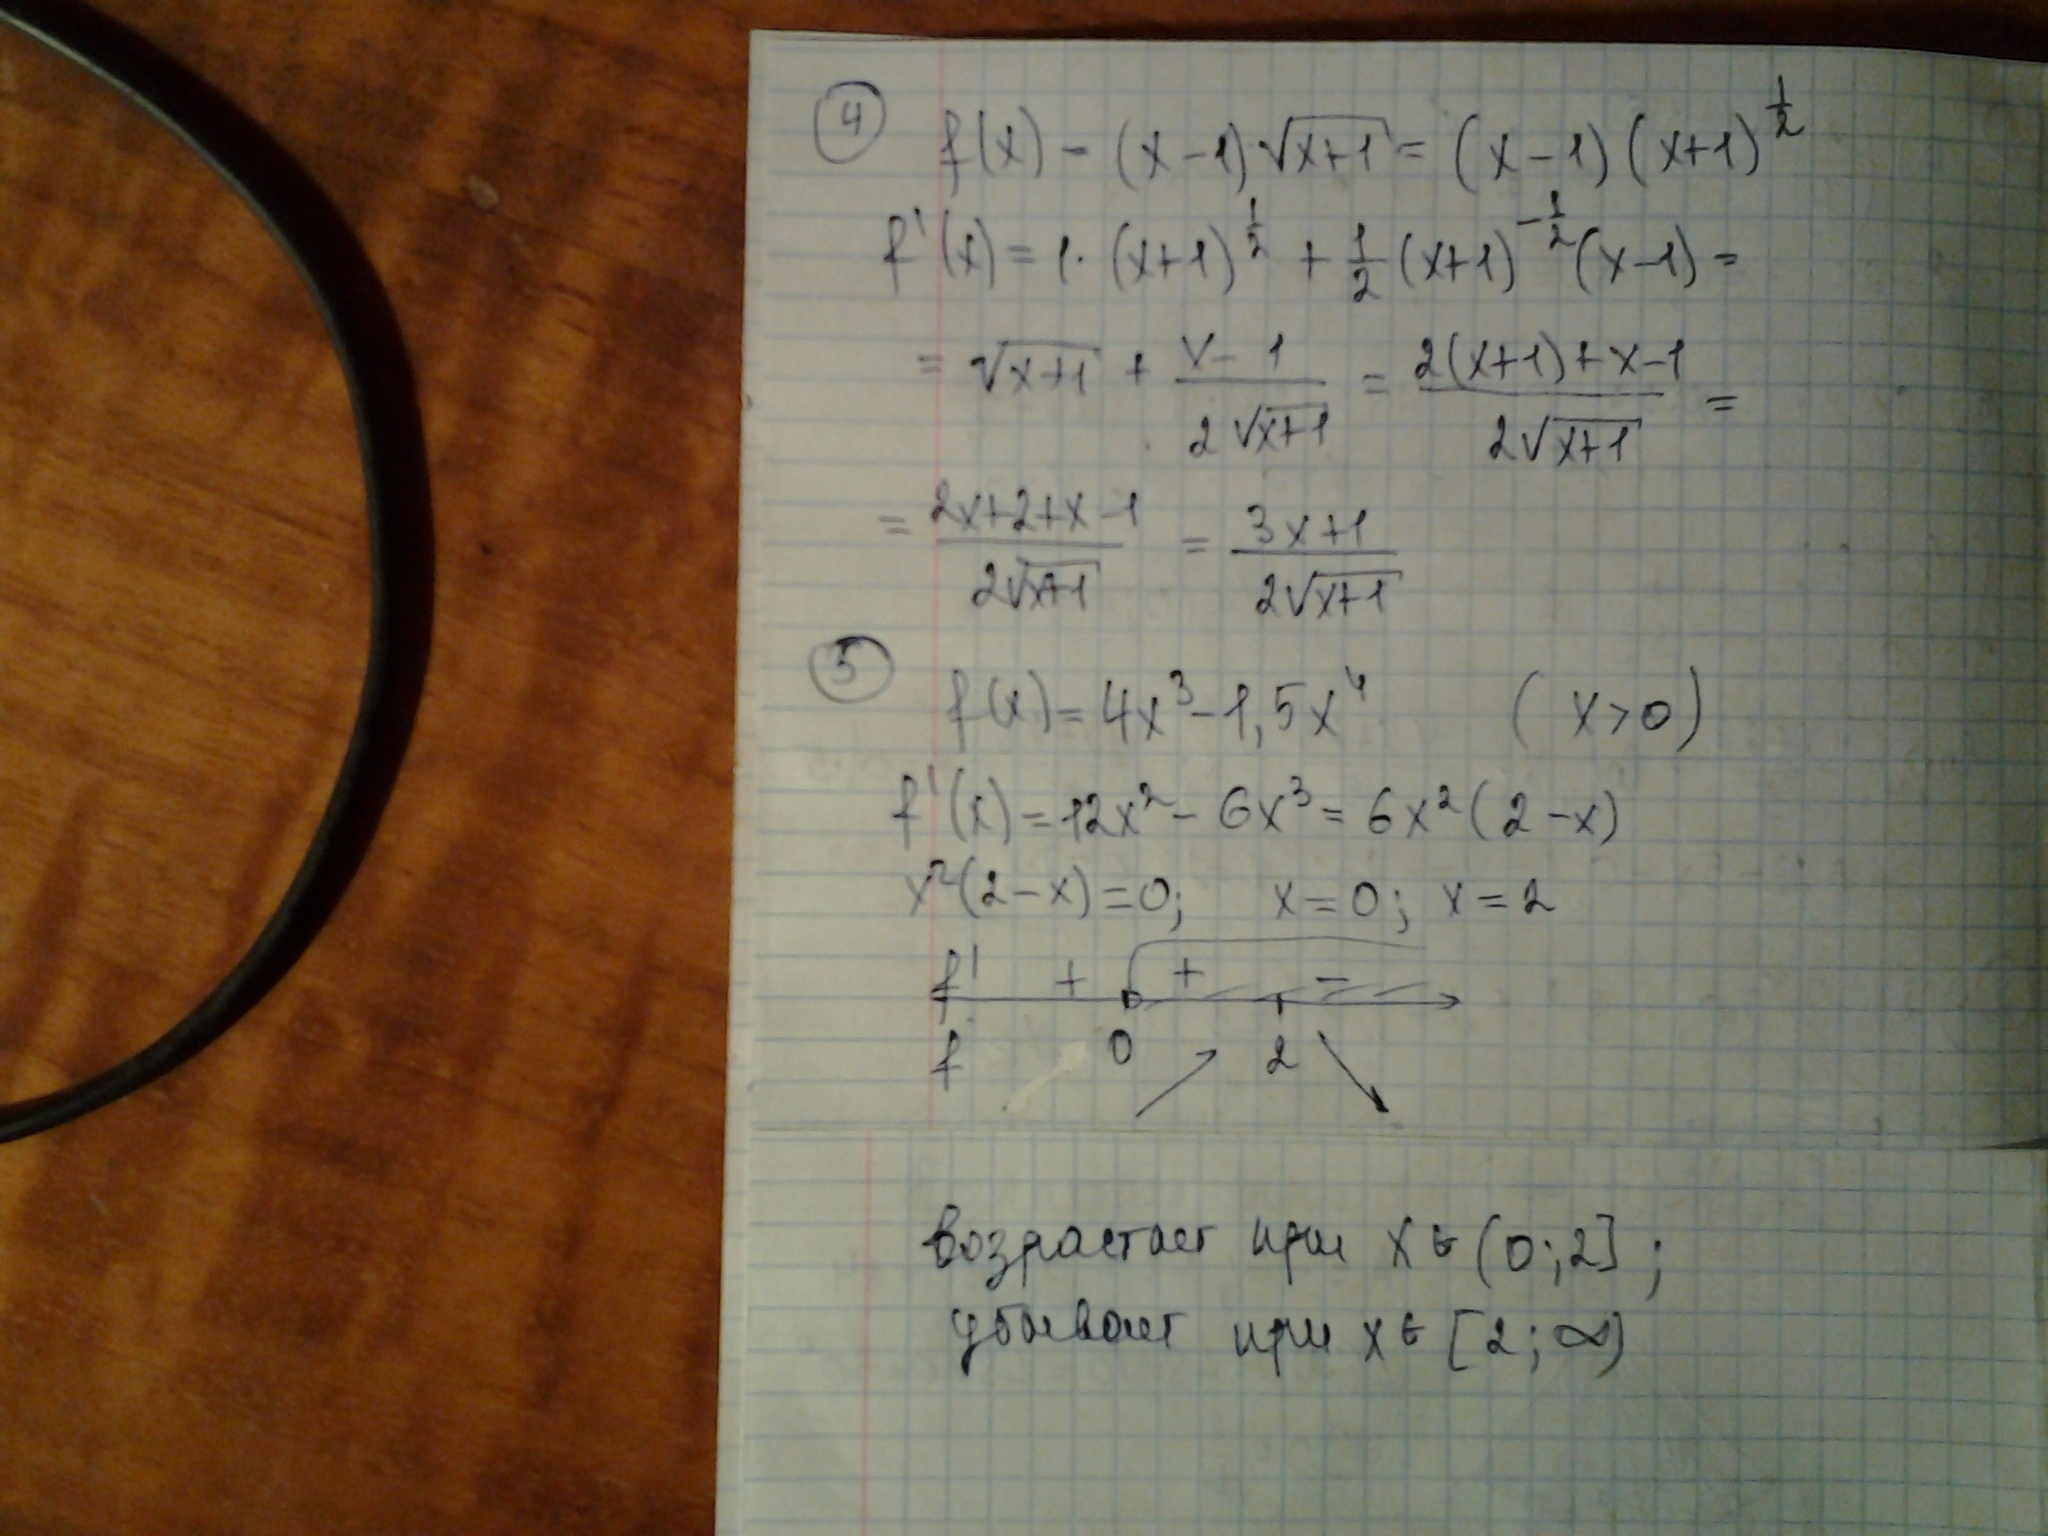 4 f(x) - (x-1)√(x+1) = (x-1)(x+1)^(1/2)
f'(x) = 1·(x+1)^(1/2) + 1/2 (x+1)^(-1/2) (x-1) =
= √(x+1) + (x-1)/(2√(x+1)) = (2(x+1)+x-1)/(2√(x+1)) =
= (2x+2+x-1)/(2√(x+1)) = (3x+1)/(2√(x+1))
5 f(x) = 4x³ - 1,5x⁴ (x>0)
f'(x) = 12x² - 6x³ = 6x²(2-x)
x²(2-x) = 0; x = 0; x = 2
f' + + -
f 0 2
возрастает при x ∈ (0;2];
убывает при x ∈ [2;∞)